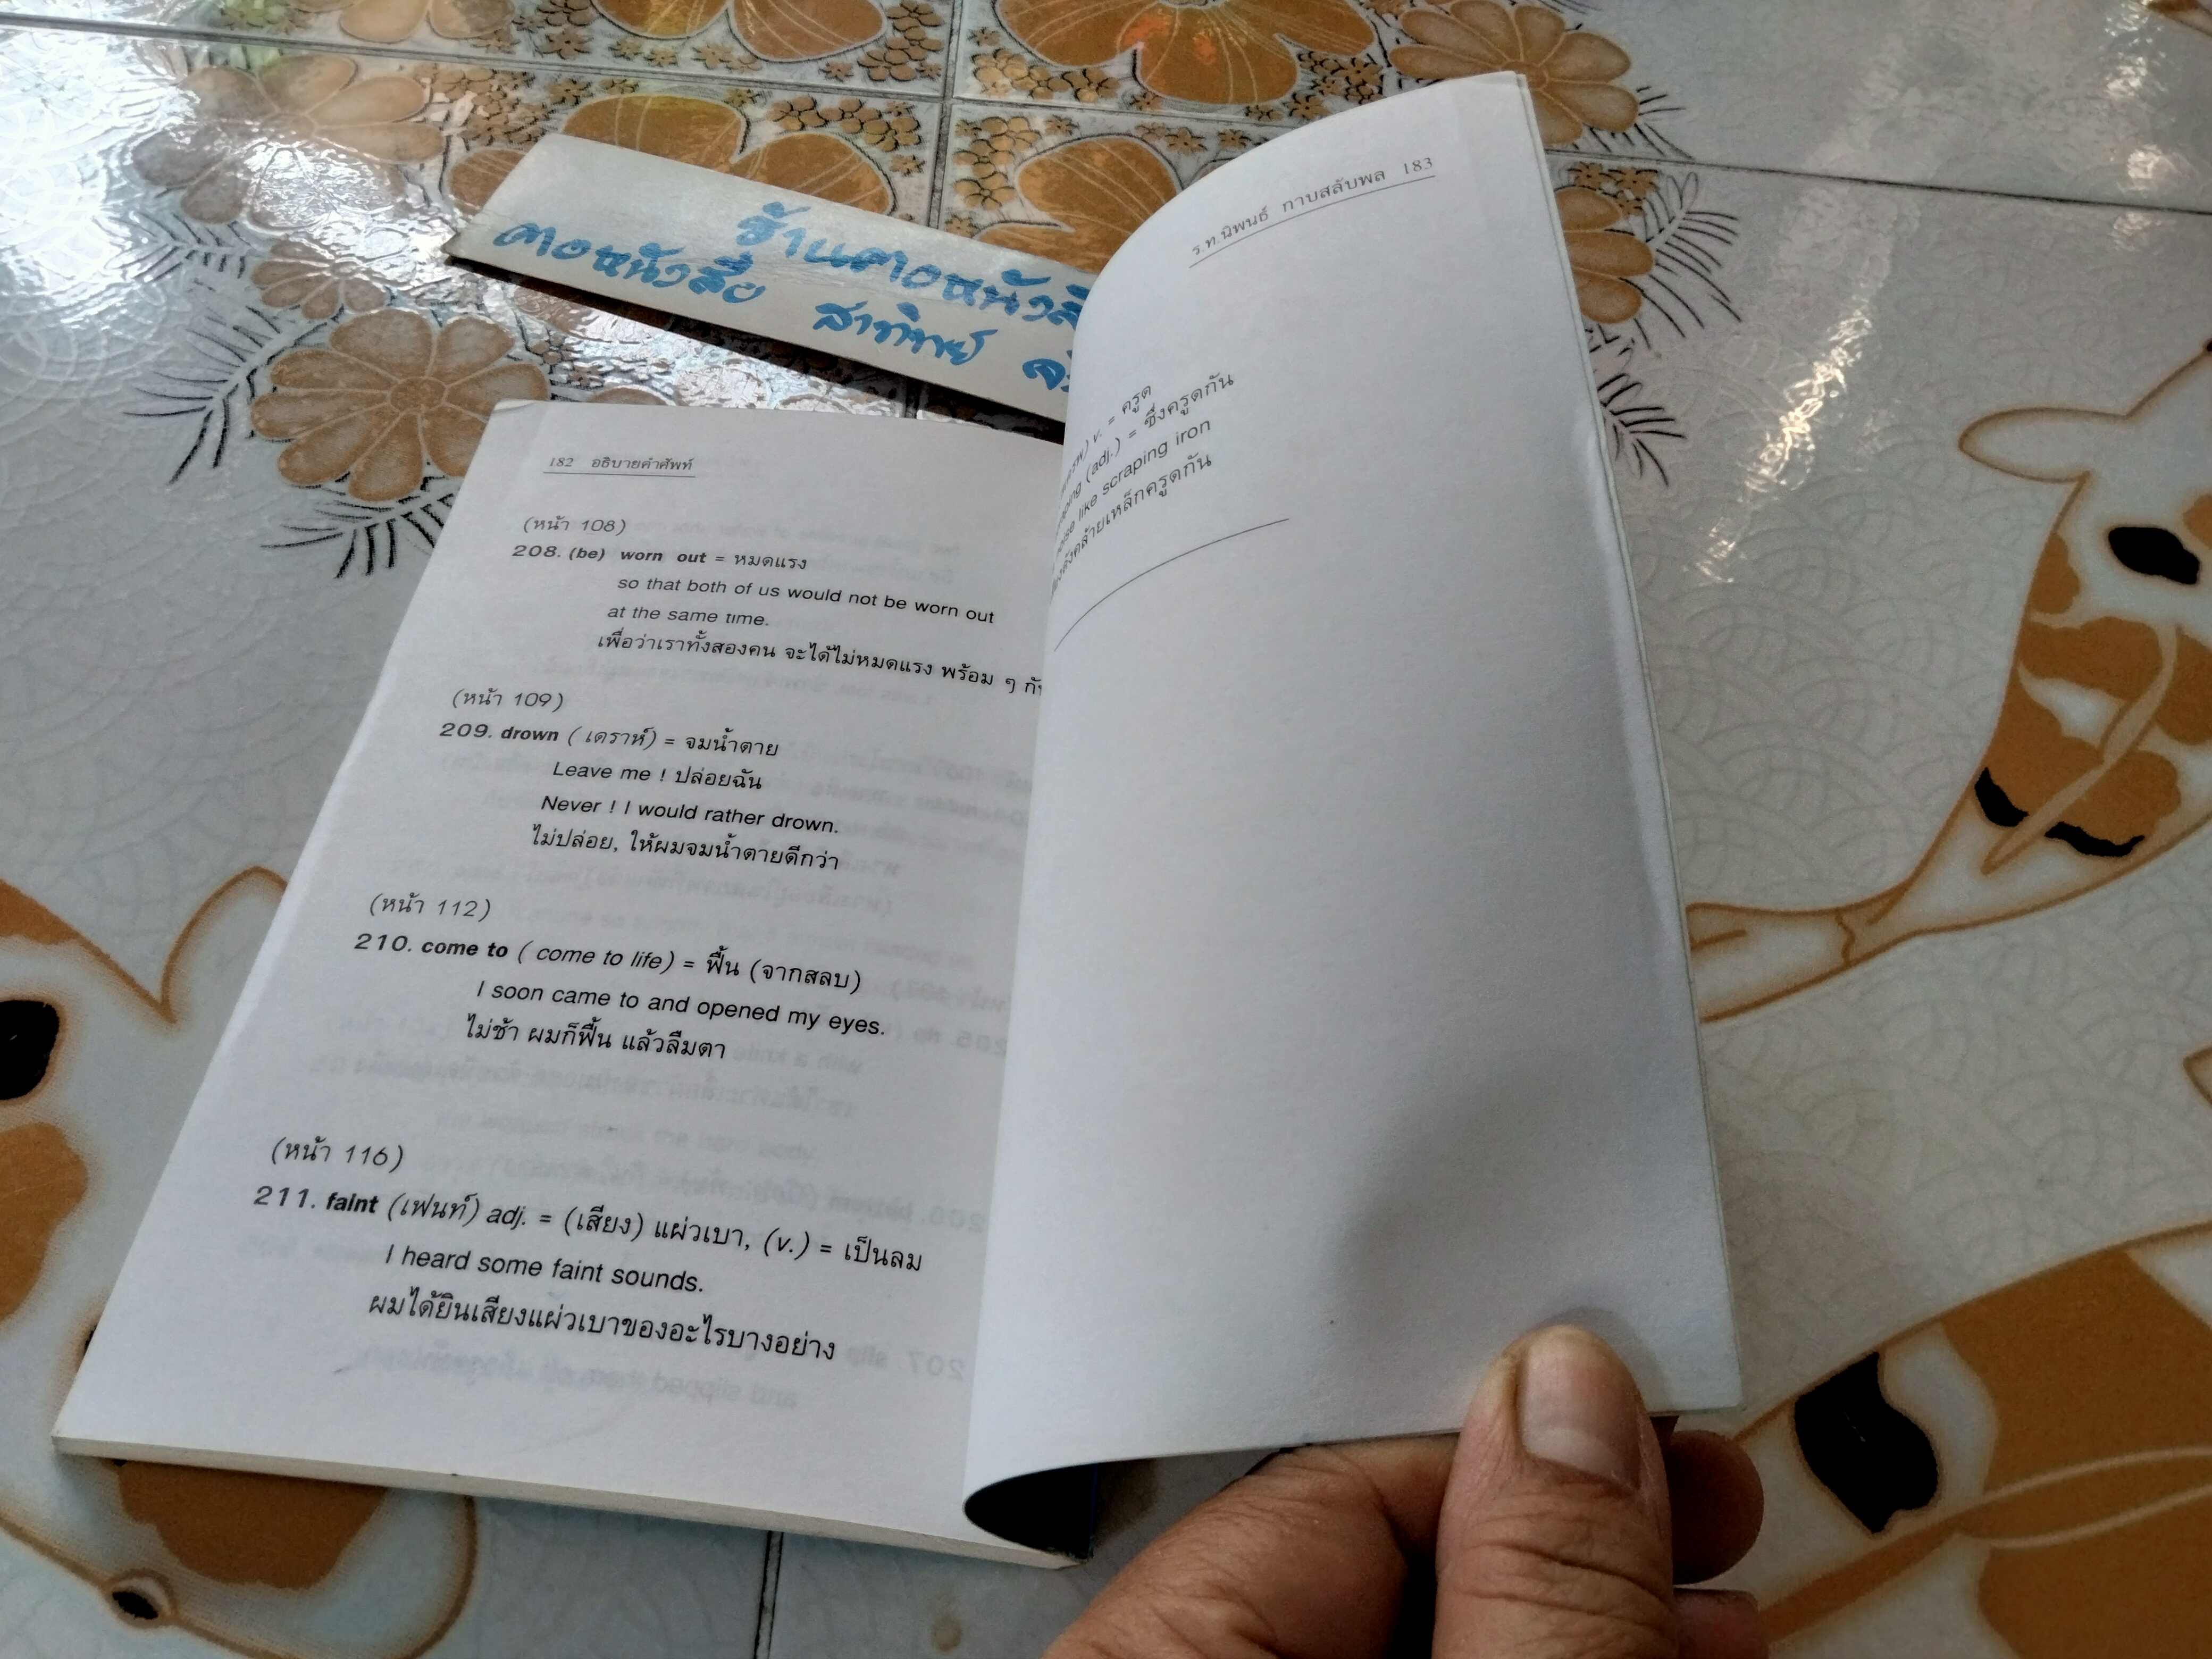 ร้านคอหนังสื
คอหนังสือ สาทิพย์
182 อธิบายคำศัพท์
(หน้า 108)
208. (be) worn out = หมดแรง
so that both of us would not be worn out
at the same time.
เพื่อว่าเราทั้งสองคน จะได้ไม่หมดแรง พร้อม ๆ กั
(หน้า 109)
209. drown ( เดราห์) = จมน้ำตาย
Leave me ! ปล่อยฉัน
Never ! I would rather drown.
ไม่ปล่อย, ให้ผมจมน้ำตายดีกว่า
(หน้า 112)
210. come to ( come to life) = ฟื้น (จากสลบ)
I soon came to and opened my eyes.
ไม่ช้า ผมก็ฟื้น แล้วลืมตา
(หน้า 116)
211. faint (เฟนท์) adj. = (เสียง) แผ่วเบา, (v.) = เป็นลม
I heard some faint sounds.
ผมได้ยินเสียงแผ่วเบาของอะไรบางอย่าง
ร.ท.นิพนธ์ กาบสลับพล 183
v. = ครูด
(adj.) = ซึ่งครูดกัน
like scraping iron
คล้ายเหล็กครูดกัน